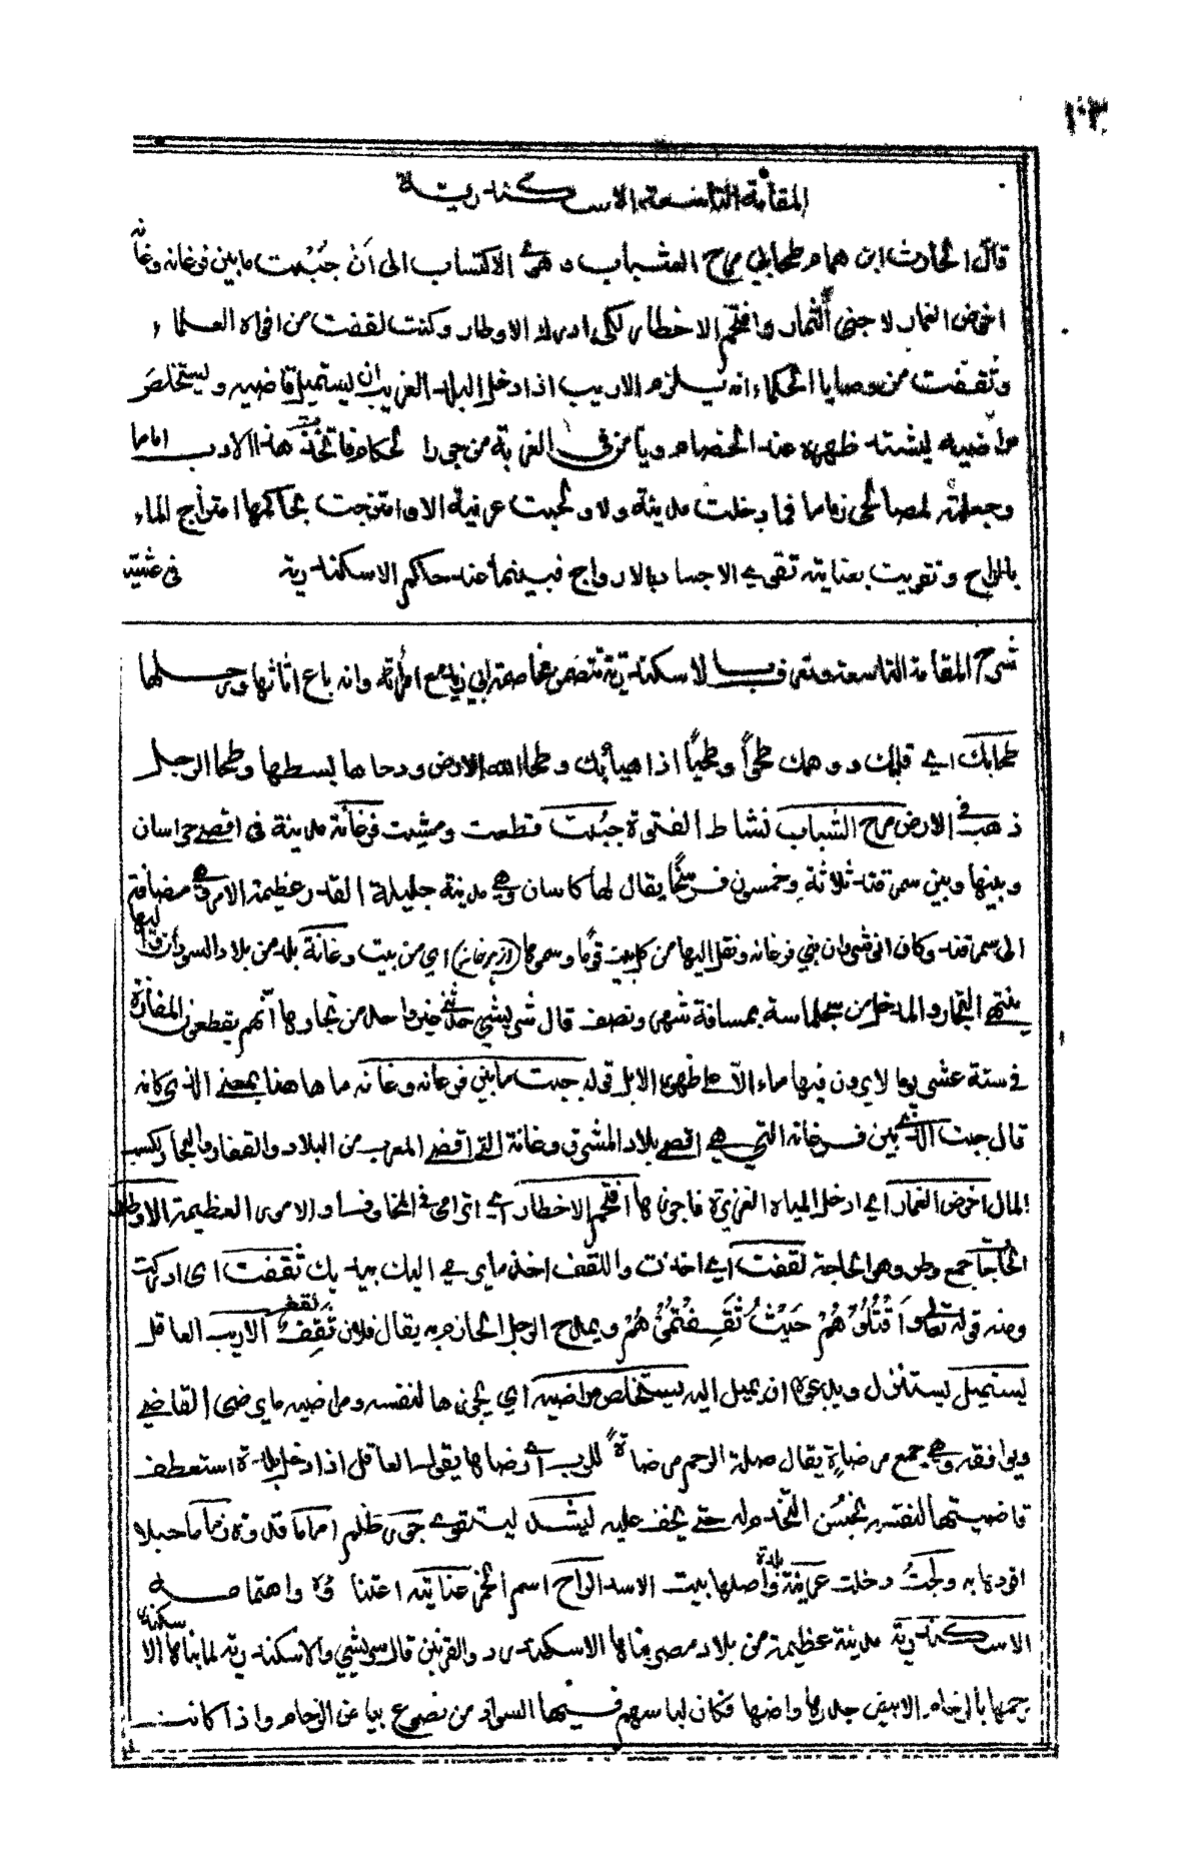 ١٠٣
المقامة التاسعة الاسكندرية
قال الحارث ابن همام طحا بي مرح الشباب وهوى الاكتساب الى أن جُبْت ما بين فرغانه وغانه
اخوض الغمار لاجني الثمار وأقتحم الاخطار لكي ادرك الاوطار وكنت لقفت من افواه العلماء
وثقفت من وصايا الحكماء انه يلزم الاديب اذا دخل البلد الغريب ان يستميل قاضيه ويستخلص
مراضيه ليشتد ظهره عند الخصام ويأمن في الغربة من جور الحكام فاتخذت هذا الادب اماما
وجعلته لمصالحي زماما فما دخلت مدينة ولا ولجت عرينة الا وامتزجت بحاكمها امتزاج الماء
بالراح وتقويت بعنايته تقوي الاجساد بالارواح فبينما عند حاكم الاسكندرية في عشية
شرح المقامة التاسعة وتعرف بالاسكندرية تتضمن مخاصمة ابي زيد مع امرأته وانه باع اثاثها ورحلها
طحا بك اي قلبك وهمك طحواً وطحياً اذا وطحا الله الارض ودحاها بسطها وطحا الرجل
ذهب في الارض مرح الشباب نشاط الفتوة جُبْت قطعت ومشيت فرغانة مدينة في اقصى خراسان
وبينها وبين سمرقند ثلاثة وخمسون فرسخا يقال لها كاسان وهي مدينة جليلة القدر عظيمة الامر وهي مضافة
الى سمرقند وكان انوشروان بني فرغانه ونقل اليها من كل بيت قوما وسموها (از هر خانه) اي من بيت وغانة بلد من بلاد السودان واليها
ينتهي التجار والمدخل من سجلماسة بمسافة شهر ونصف قال شريشي حدثني واحد من تجارها أنهم يقطعون المفازة
في ستة عشر يوما لا يرون فيها ماء الا على ظهور الابل قوله جبت ما بين فرغانه وغانه ما هاهنا بمعنى الذي كانه
قال جبت الذي بين فرغانه التي هي اقصى بلاد المشرق وغانة التي اقصى المغرب من البلاد والقفار والبحار لكسب
المال اخوض الغمار اي ادخل المياه الغزيرة فاجوزها أقتحم الاخطار اي اترامى في المخاوف والامور العظيمة الاوطار
الحاجات جمع وطر وهو الحاجة لقفت اي اخذت واللقف اخذ ما يرمي اليك بيدك ثقفت اي ادركت
ومنه قوله تعالى وَاقْتُلُوْهُمْ حَيْثُ ثَقِفْتُمُوْهُمْ ويمدح الرجل الحازم به يقال فلان ثَقِفٌ لقف الاريب العاقل
يستميل يستنزل ويدعوه ان يميل اليه يستخلص مراضيه اي يحوزها لنفسه ومراضيه ما يرضى القاضي
ويوافقه وهي جمع مرضاة يقال صلة الرحم مرضاةٌ للرب اي رضاها يقول العاقل اذا دخل بلدة استعطف
قاضيتها لنفسه بحُسْن التخدم له حتى يخف عليه ليشتد ليتقوى جور ظلم اماما قدوة زماما حبلا
اقودها به ولجتُ دخلت عرينة بلدة واصلها بيت الاسد الراح اسم الخمر عنايته اعتناؤه واهتمامه
الاسكندرية مدينة عظيمة من بلاد مصر بناها الاسكندر ذو القرنين قال شريشي والاسكندرية لما بناها الاسكندر
رخمها بالرخام الابيض جدرها وارضها فكان لباسهم فيها السواد من نصوع بياض الرخام واذا كانت